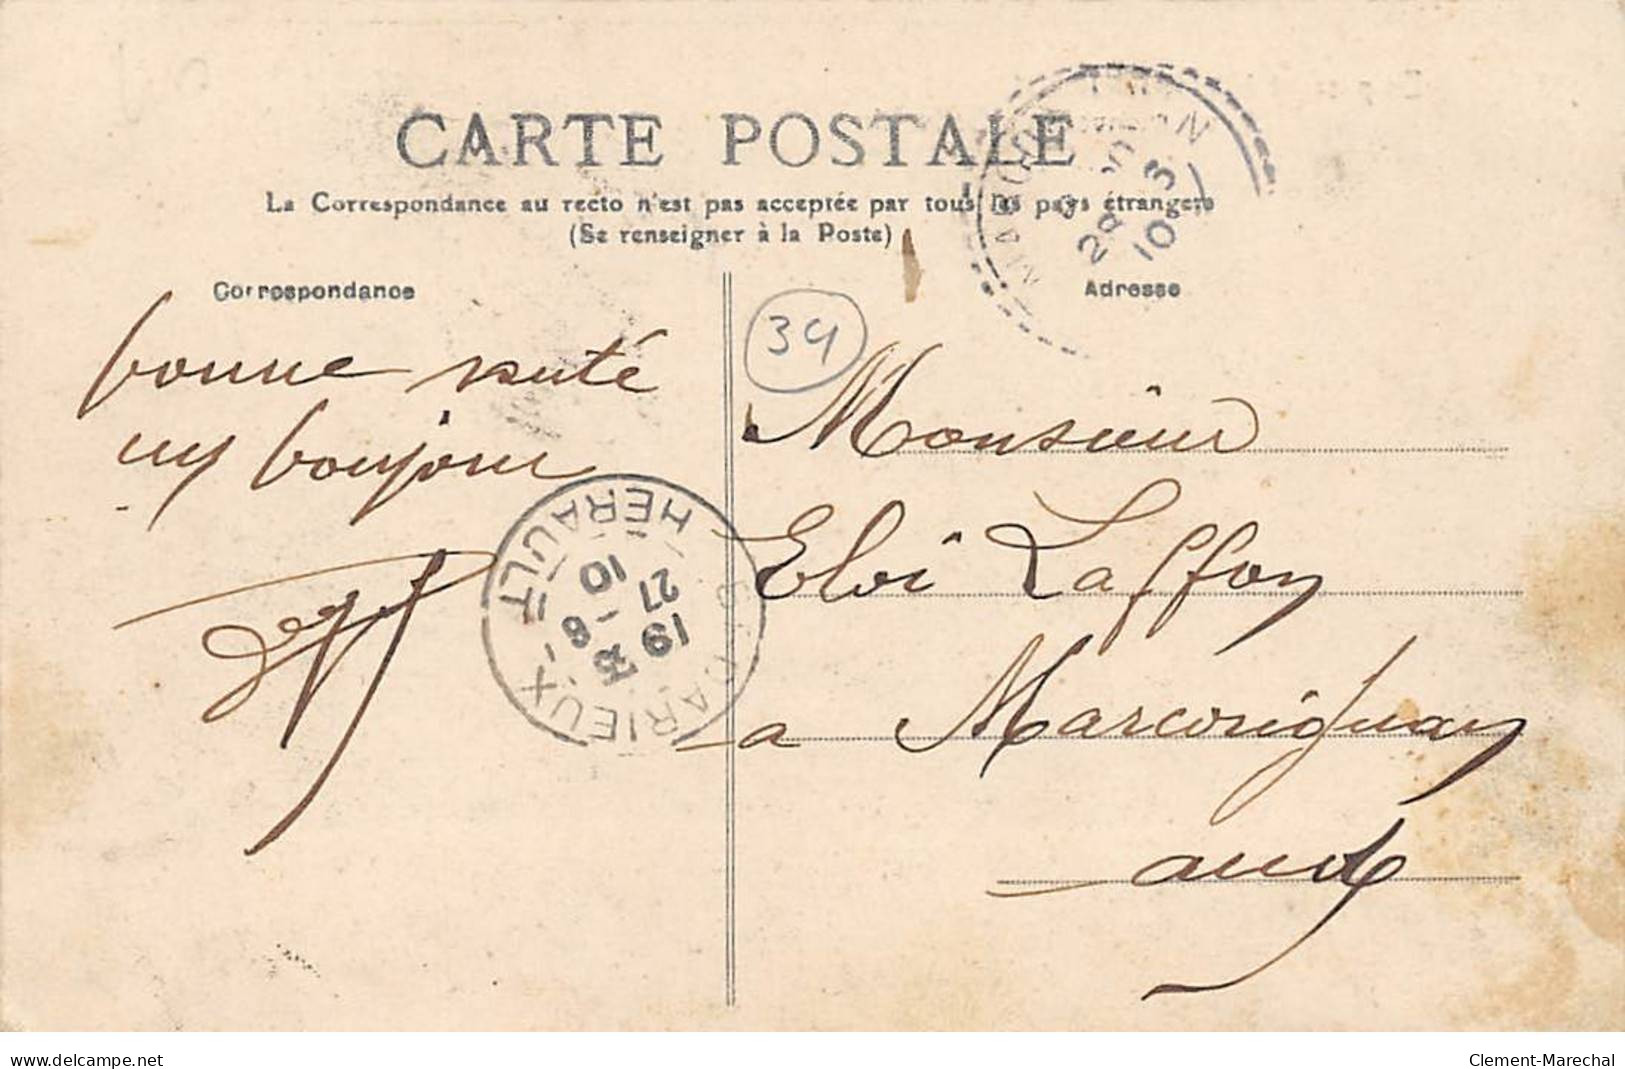 CARTE POSTALE
La Correspondance au recto n'est pas acceptée par tous les pays étrangers
(Se renseigner à la Poste)
Correspondance
Adresse
bonne santé
un bonjour
34
Monsieur
Eloi Laffon
a Marcorignan
aude
HERAULT
19 35
27 - 8
10
28
10
www.delcampe.net
Clement-Marechal